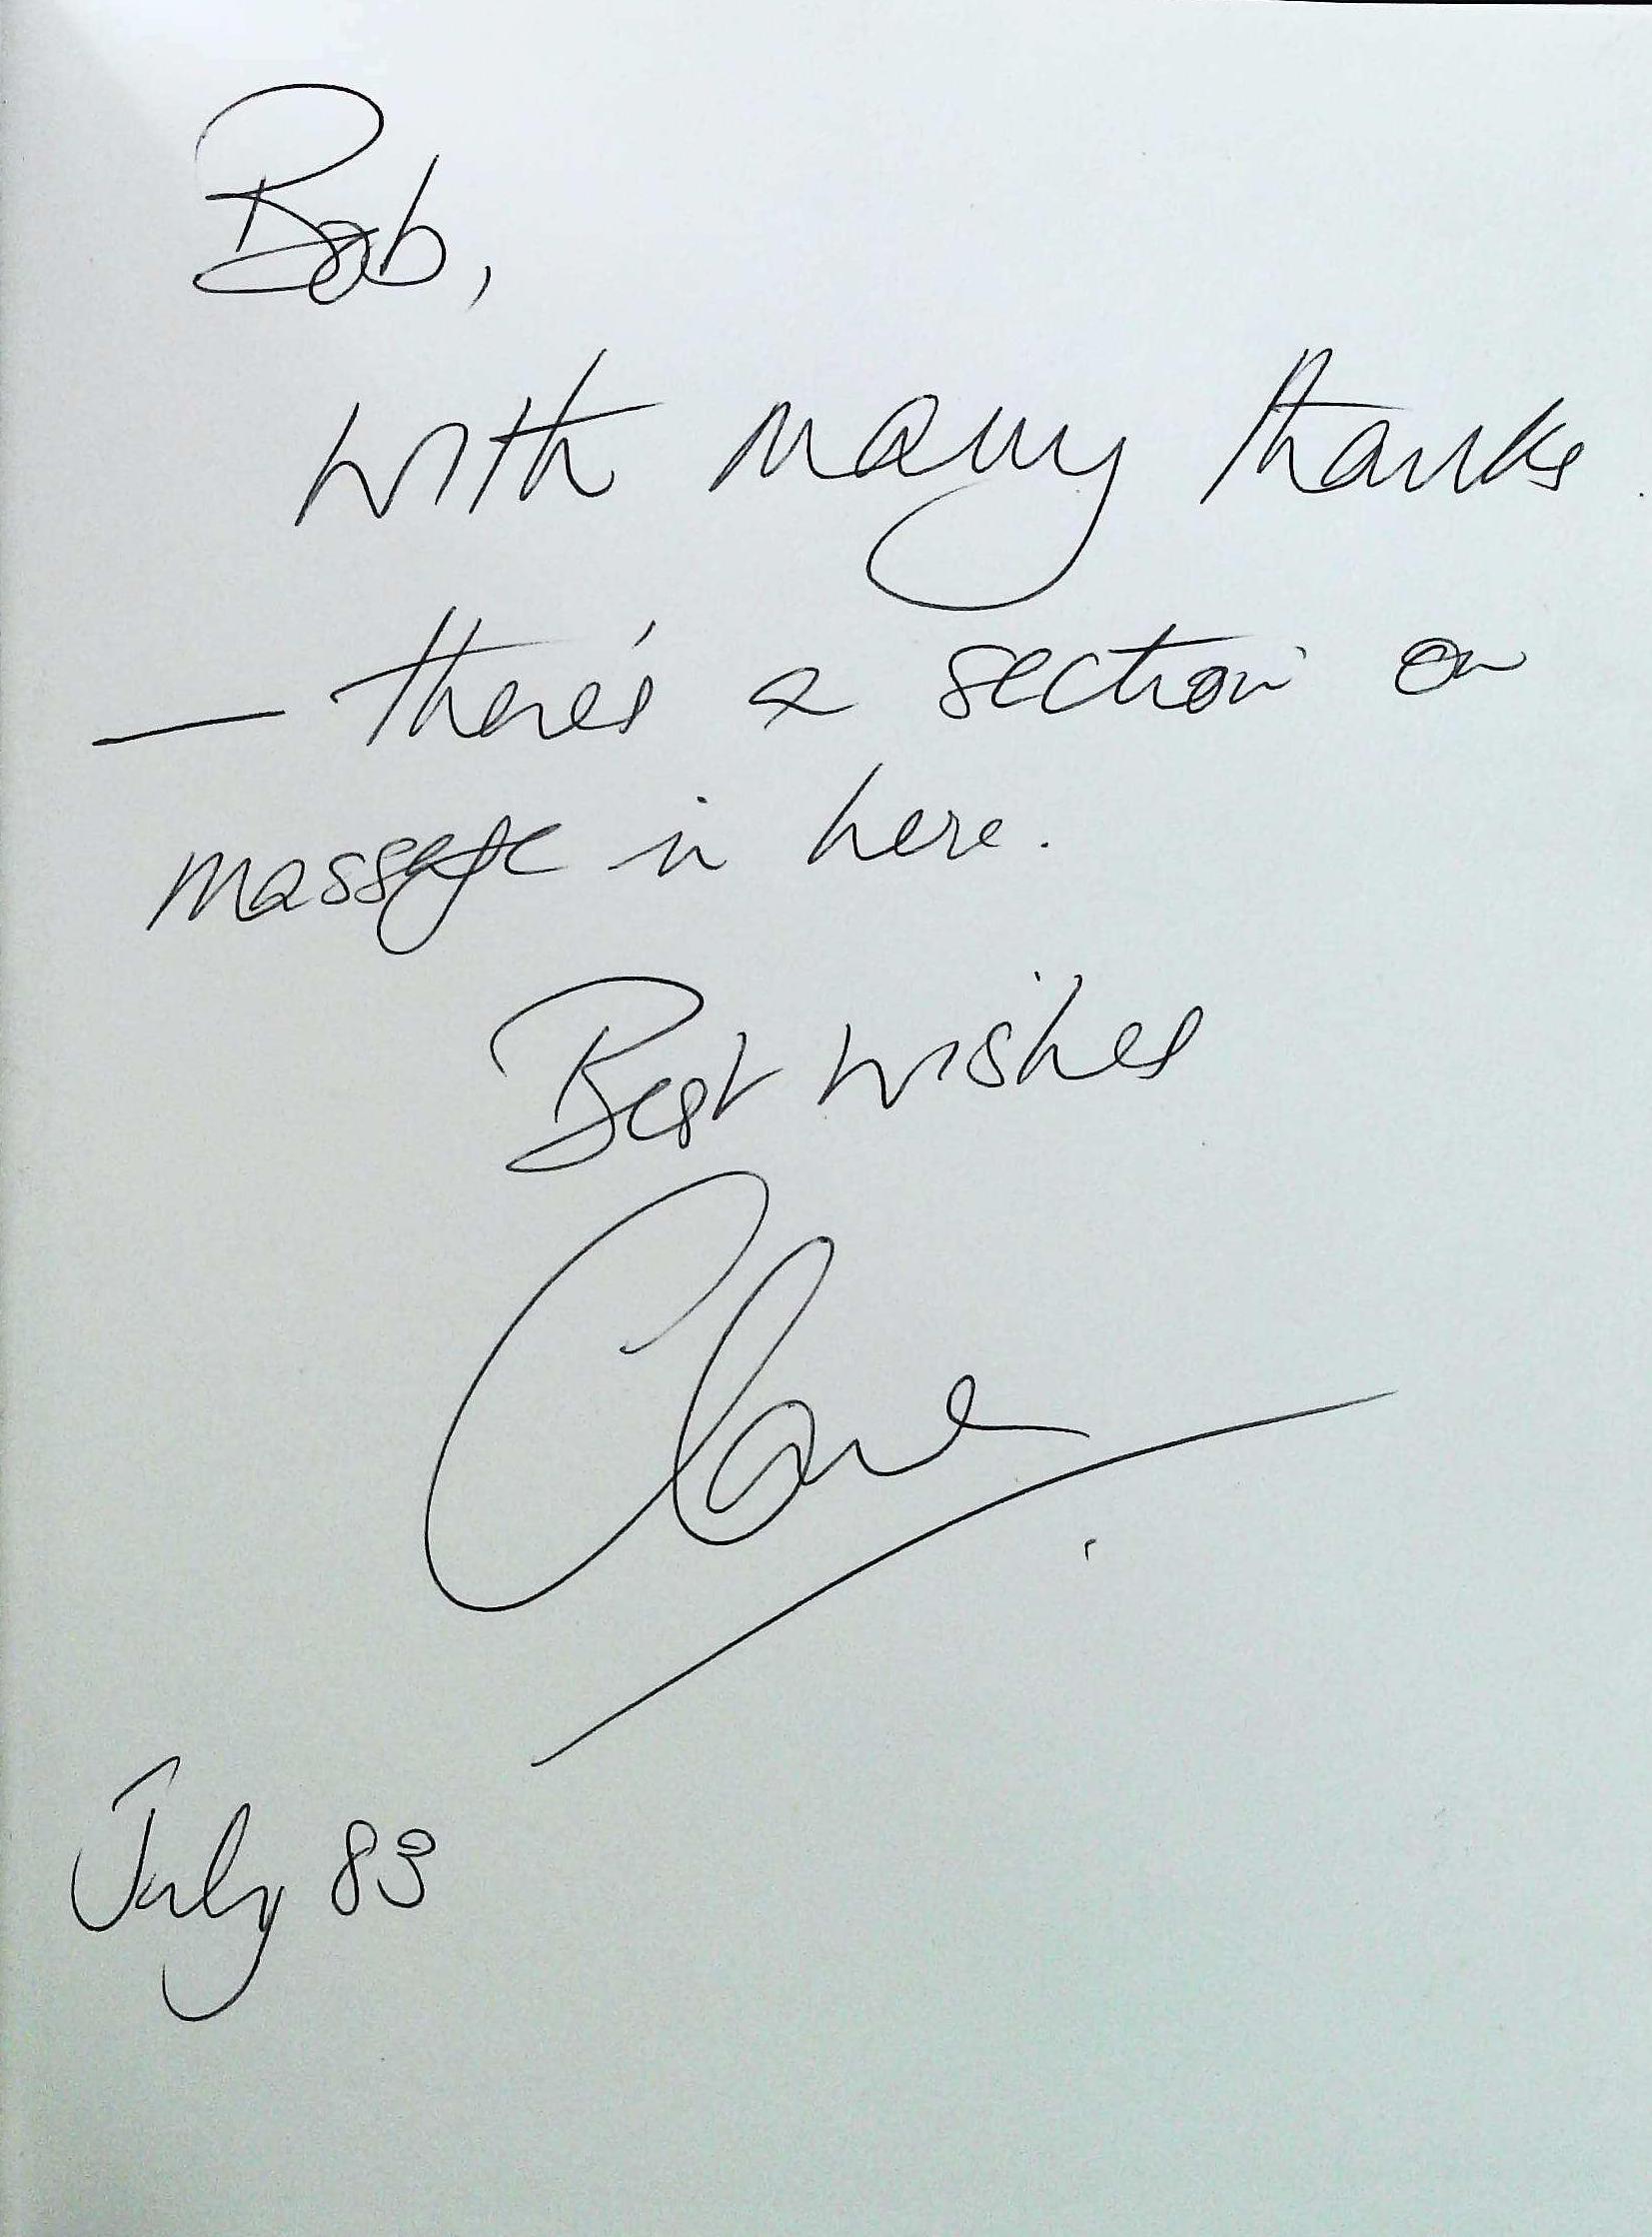 Bob,
with many thanks.
— there's a section on
massage in here.
Best wishes
Clare
July 83